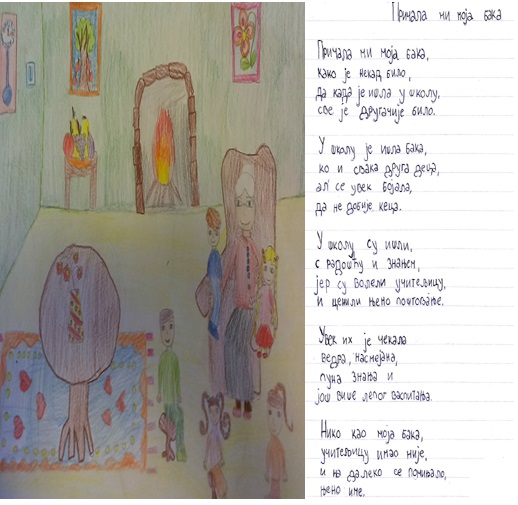 Причала ми моја бака
Причала ми моја бака,
како је некад било,
да када је ишла у школу,
све је другачије било.
У школу је ишла бака,
ко и свака друга деца,
ал' се увек бојала,
да не добије кеца.
У школу су ишли,
с радошћу и знањем,
јер су волели учитељицу,
и ценили њено поштовање.
Увек их је чекала
ведра, насмејана,
пуна знања и
још више лепог васпитања.
Нико као моја бака,
учитељицу имао није,
и на далеко се помињало,
њено име.